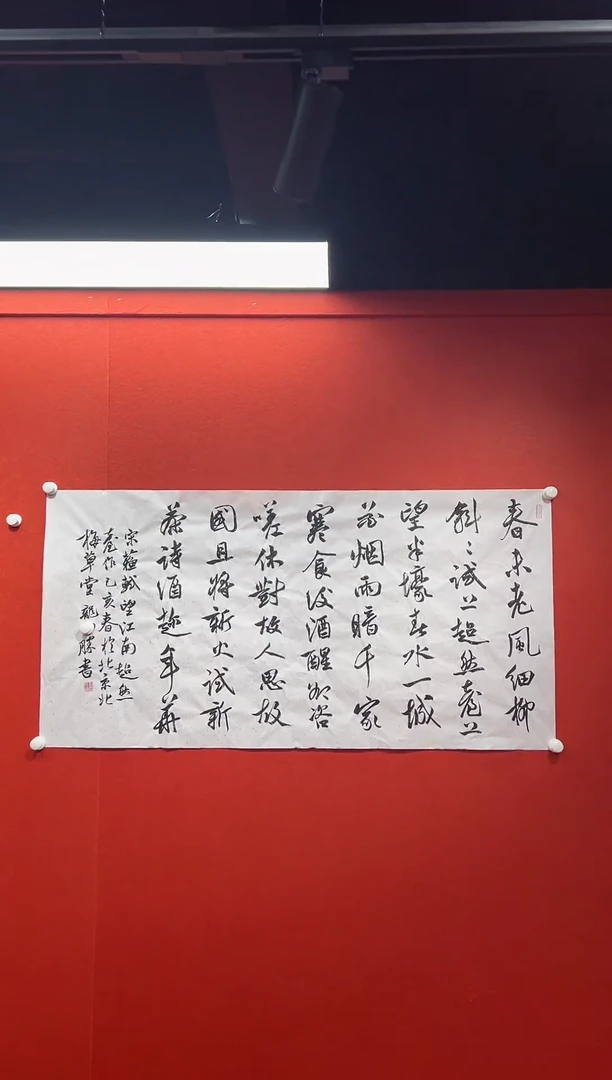 春未老風細柳
斜〻試上超然臺上
望半壕春水一城
花烟雨暗千家
寒食後酒醒却咨
嗟休對故人思故
國且將新火試新
茶詩酒趁年華
宋蘇軾望江南超然
臺作乙亥春於北京北
梅草堂 勝書